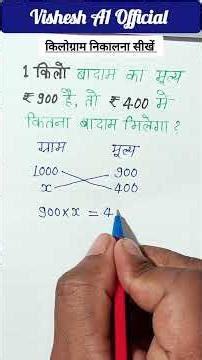 Vishesh A1 Official
किलोग्राम निकालना सीखें
1 किलो बादाम का मूल्य
₹900 है, तो ₹400 में
कितना बादाम मिलेगा?
ग्राम मूल्य
1000 900
x 400
900×x = 4